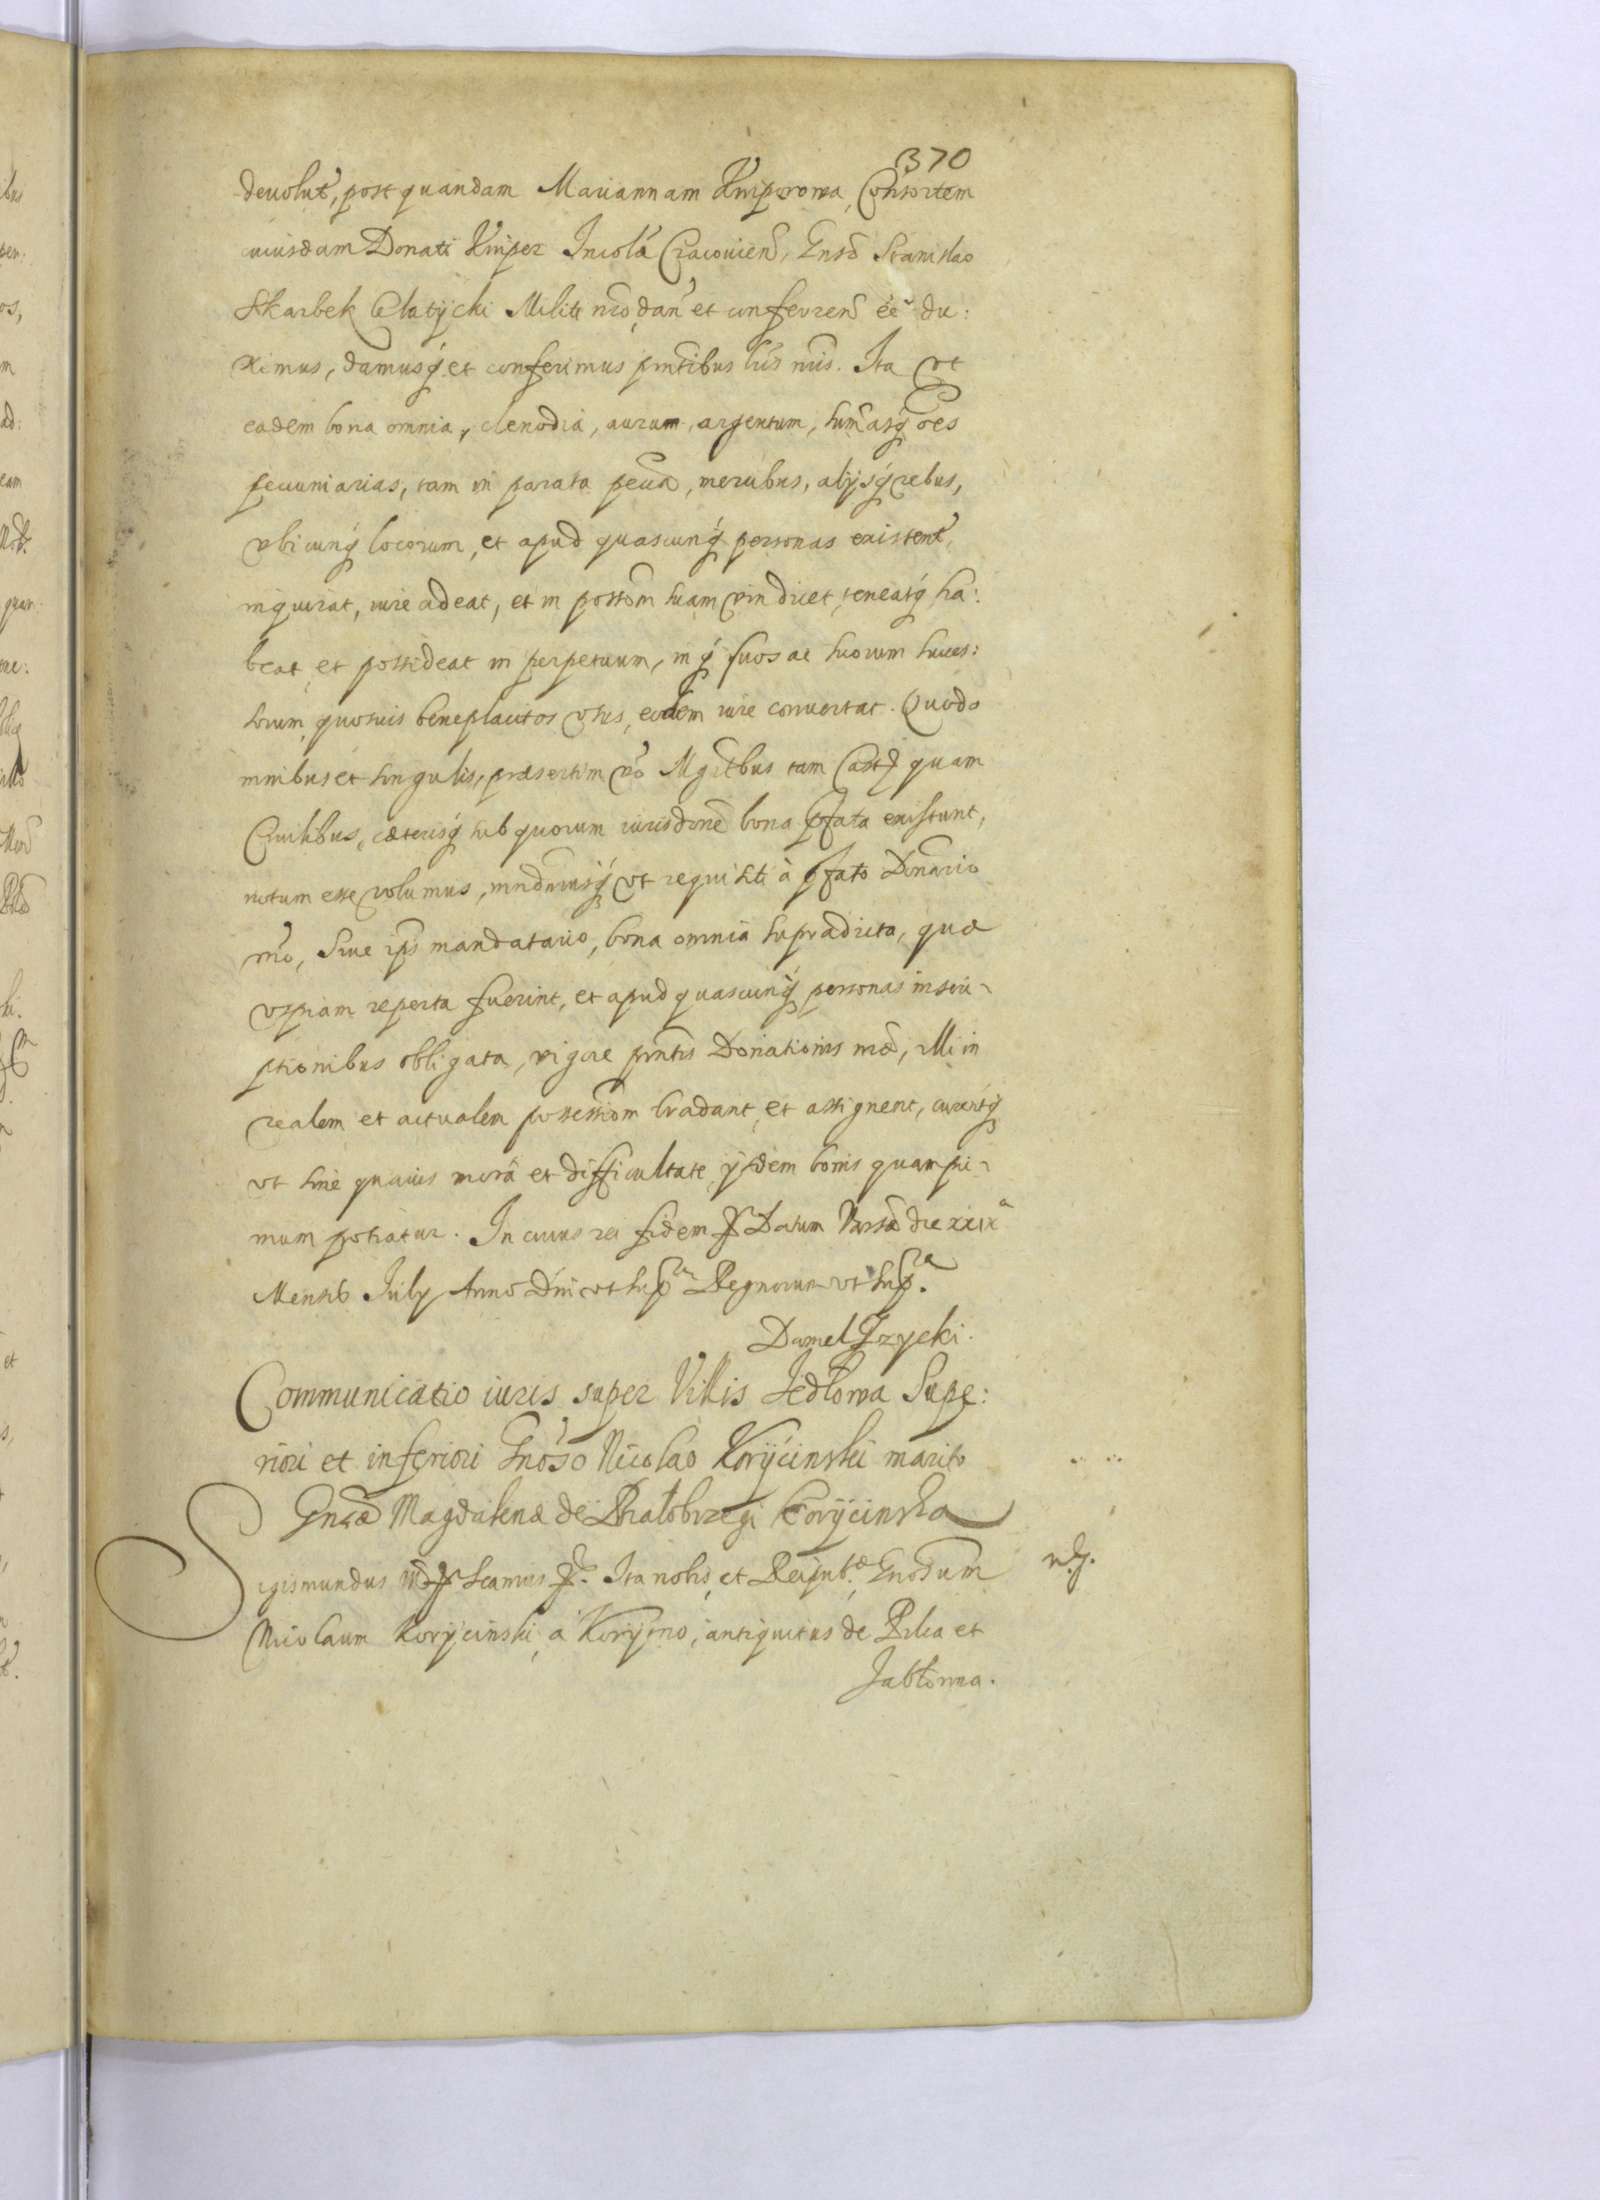 370
deuolut, post quandam Mariannam Kniperowa, Consortem
cuiusdam Donati Kniper Incolá Cracouien, Gnso Stanislao
Skarbek Clatycki Militi nro, dan et conferren ēē du:
ximus, damusq et conferimus pntibus lris nris. Ita vt
eadem bona omnia, clenodia, aurum, argentum, sumasq oēs
pecuniarias, tam in parata pecua, mercibus, alijsq rebus,
vbicunq locorum, et apud quascunq personas existent,
inquirat, iure adeat, et in possom suam vindicet, teneatq ha:
beat, et possideat in perpetuum, inq suos ac suorum succes:
sorum, quosuis beneplacitos vsus, eodem iure conuertat. Quod o
mnibus et singulis, præsertim vō Mgrtbus tam Castr quam
Ciuilibus, cæterisq sub quorum iurisdone bona pfata existunt,
notum esse volumus, mndmusq vt requisiti à pfato Donario
nrō, siue ips mandatario, bona omnia supradicta, quæ
vspiam reperta fuerint, et apud quascunq personas inscri-
ptionibus obligata, vigore pntis Donationis nræ, illi in
realem et actualem possessiom tradant, et assignent, curentq
vt sine quauis morâ et difficultate, ijsdem bonis quampri-
mum potiatur. In cuius rei fidem Datum Varsæ die xxix a
Mensis July Anno Dni vt supra Regnorum vt supra.
Daniel Jzycki.
Communicatio iuris super Villis Jedlowa Supe:
riori et inferiori Gnoso Nicolao Koryċinski marito
Gnsæ Magdalenæ de Bialobrzegi Korycinska
Sigismundus III Seamus. Ita nobis, et Reipubæ, Gnosum
Nicolaum Korycinski, à Koryno, antiquitus de Pilca et
Jablonna.